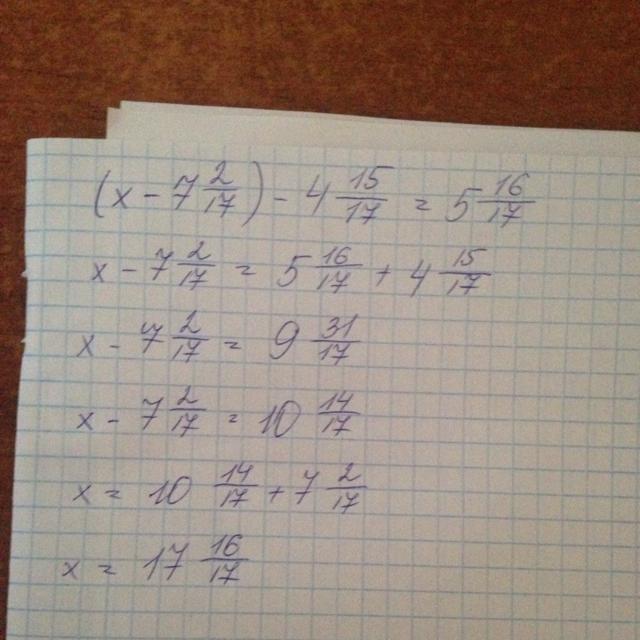 (x - 7 2/17) - 4 15/17 = 5 16/17
x - 7 2/17 = 5 16/17 + 4 15/17
x - 7 2/17 = 9 31/17
x - 7 2/17 = 10 14/17
x = 10 14/17 + 7 2/17
x = 17 16/17